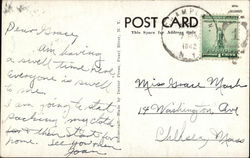 POST CARD
This Space for Address Only
Dear Grace
Am having
a swell time here
Everyone is swell
to me.
I am going to start
packing my clothes
& then start for
home. See you then
Joan
1942
Miss Grace Marsh
14 Washington Ave
Chelsea, Mass